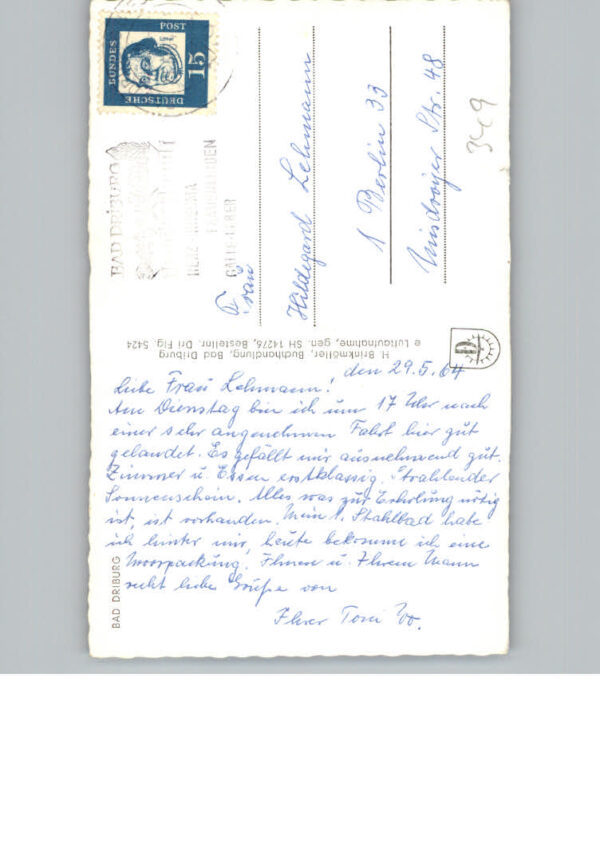 DEUTSCHE
BUNDES
POST
15
BAD DRIBURG
HERZ RHEUMA
FRAUENLEIDEN
Frau
Hildegard Lehmann
1 Berlin 33
Str. 48
3429
H. Brinkmöller, Buchhandlung, Bad Driburg
e Luftaufnahme, gen. SH 1427/6, Bestellnr. Dri Flg. 5424
den 29.5.64
Liebe Frau Lehmann!
Am Dienstag bin ich um 17 Uhr nach
einer sehr angenehmen Fahrt hier gut
gelandet. Es gefällt mir ausnehmend gut.
Zimmer u. Essen erstklassig. Strahlender
Sonnenschein. Alles was zur Erholung nötig
ist, ist vorhanden. Mein 1. Stahlbad habe
ich hinter mir, heute bekomme ich eine
Moorpackung. Ihnen u. Ihrem Mann
recht liebe Grüße von
Ihrer Toni
BAD DRIBURG